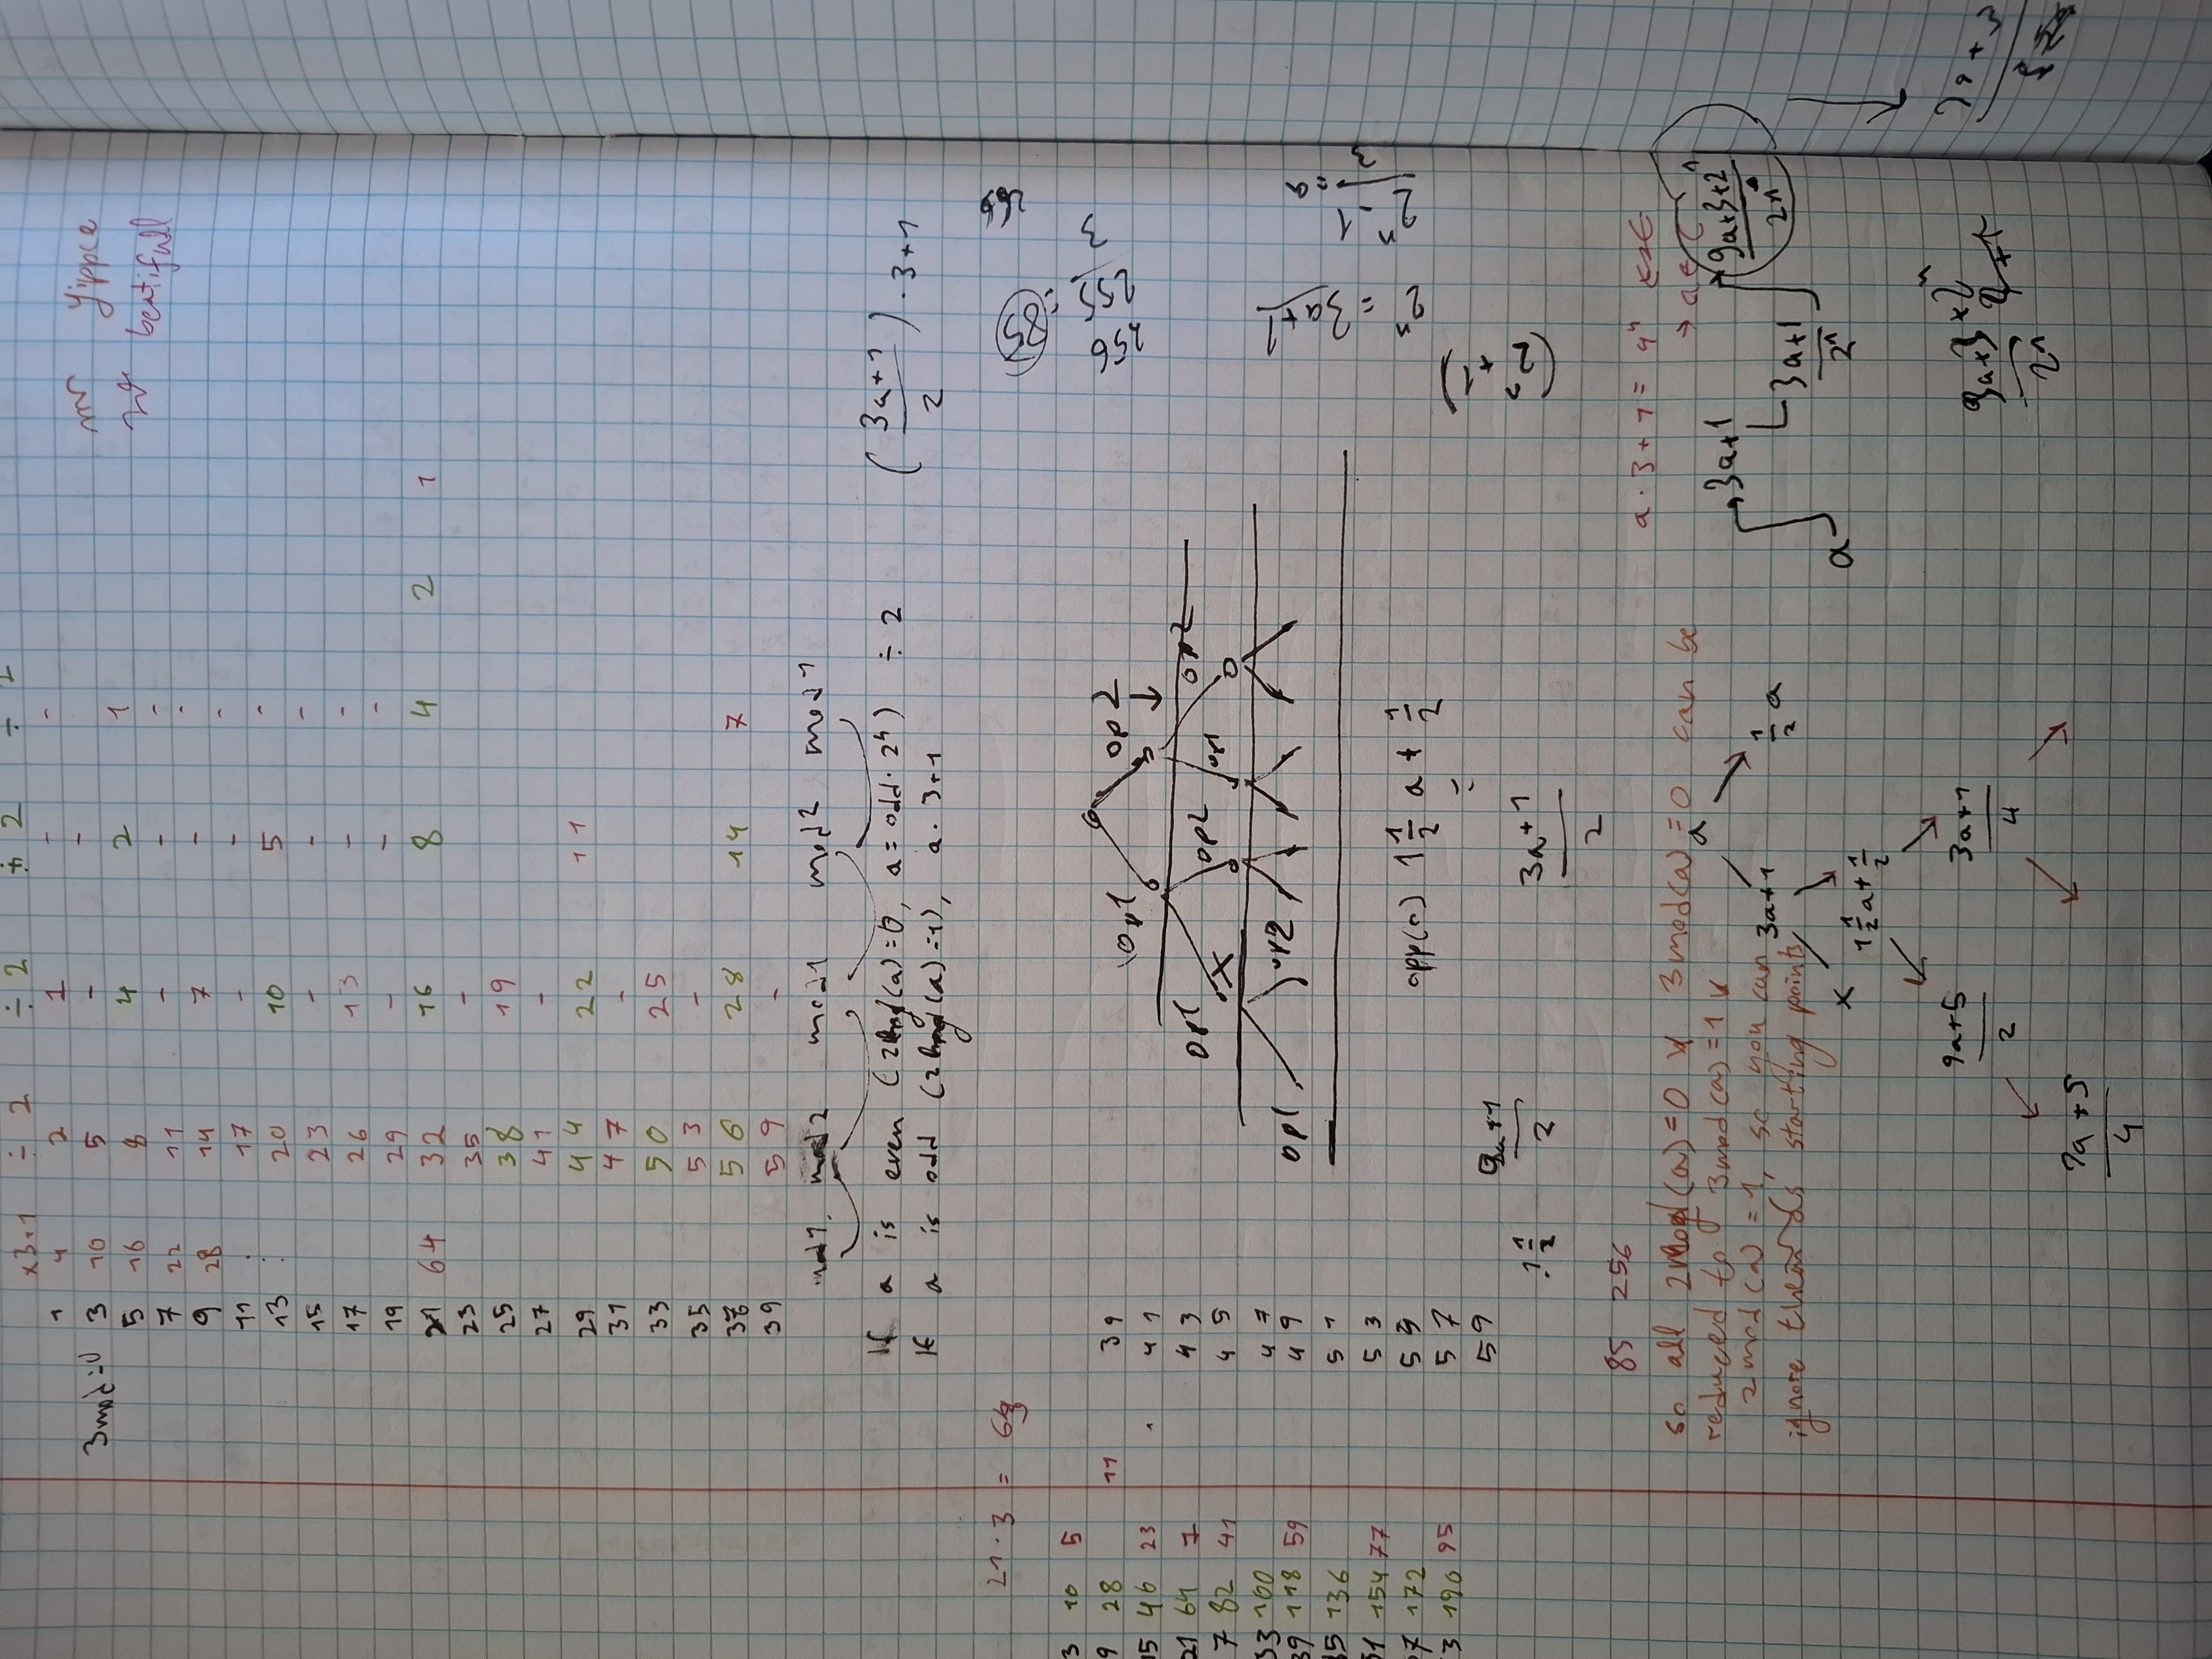 x3+1 ÷ 2 ÷ 2 ÷ 2 ÷ 2
1 4 2 1 - -
3mod=0 3 10 5 - -
5 16 8 4 2 1
7 22 11 - - -
9 28 14 7 - -
11 : 17 - - -
13 : 20 10 5 -
15 23 - - -
17 26 13 - -
19 29 - - -
21 64 32 16 8 4 2 1
23 35 -
25 38 19
27 41 -
29 44 22 11
31 47 -
33 50 25
35 53 -
37 56 28 14 7
39 59 -
Yippee
beatifull
mod1. mod2 mod1 mod2 mod1
If a is even (2mod(a)=0, a = odd · 2ⁿ) ÷ 2
If a is odd (2mod(a)=1), a · 3+1
(3a+1/2) · 3+1
21 · 3 =
3 10 5
9 28 11
15 46 23
21 64 1
7 82 41
33 100
39 118 59
45 136
51 154 77
57 172
3 190 95
39
41
43
45
47
49
51
53
55
57
59
op1 op2
op1 op2 op1 op2
X
op1 op2
256
255 : 3
85
2ⁿ = 3a+1
2ⁿ-1/3 = a
(2ⁿ+1)
opp(a) 1 1/2 a + 1/2
=
3a+1/2
1 1/2
9a+1/2
85 256
a · 3+1 = 4ⁿ
so all 2mod(a)=0 v 3mod(a)=0 can be
reduced to 3mod(a)=1 v
2mod(a)=1, so you can
ignore them as starting points
a
3a+1 1/2 a
x 1 1/2 a + 1/2
9a+5/2 3a+1/4
9a+5/4
a
3a+1
3a+1/2ⁿ
9a+3+2ⁿ/2ⁿ
9a+3+2ⁿ/2ⁿ